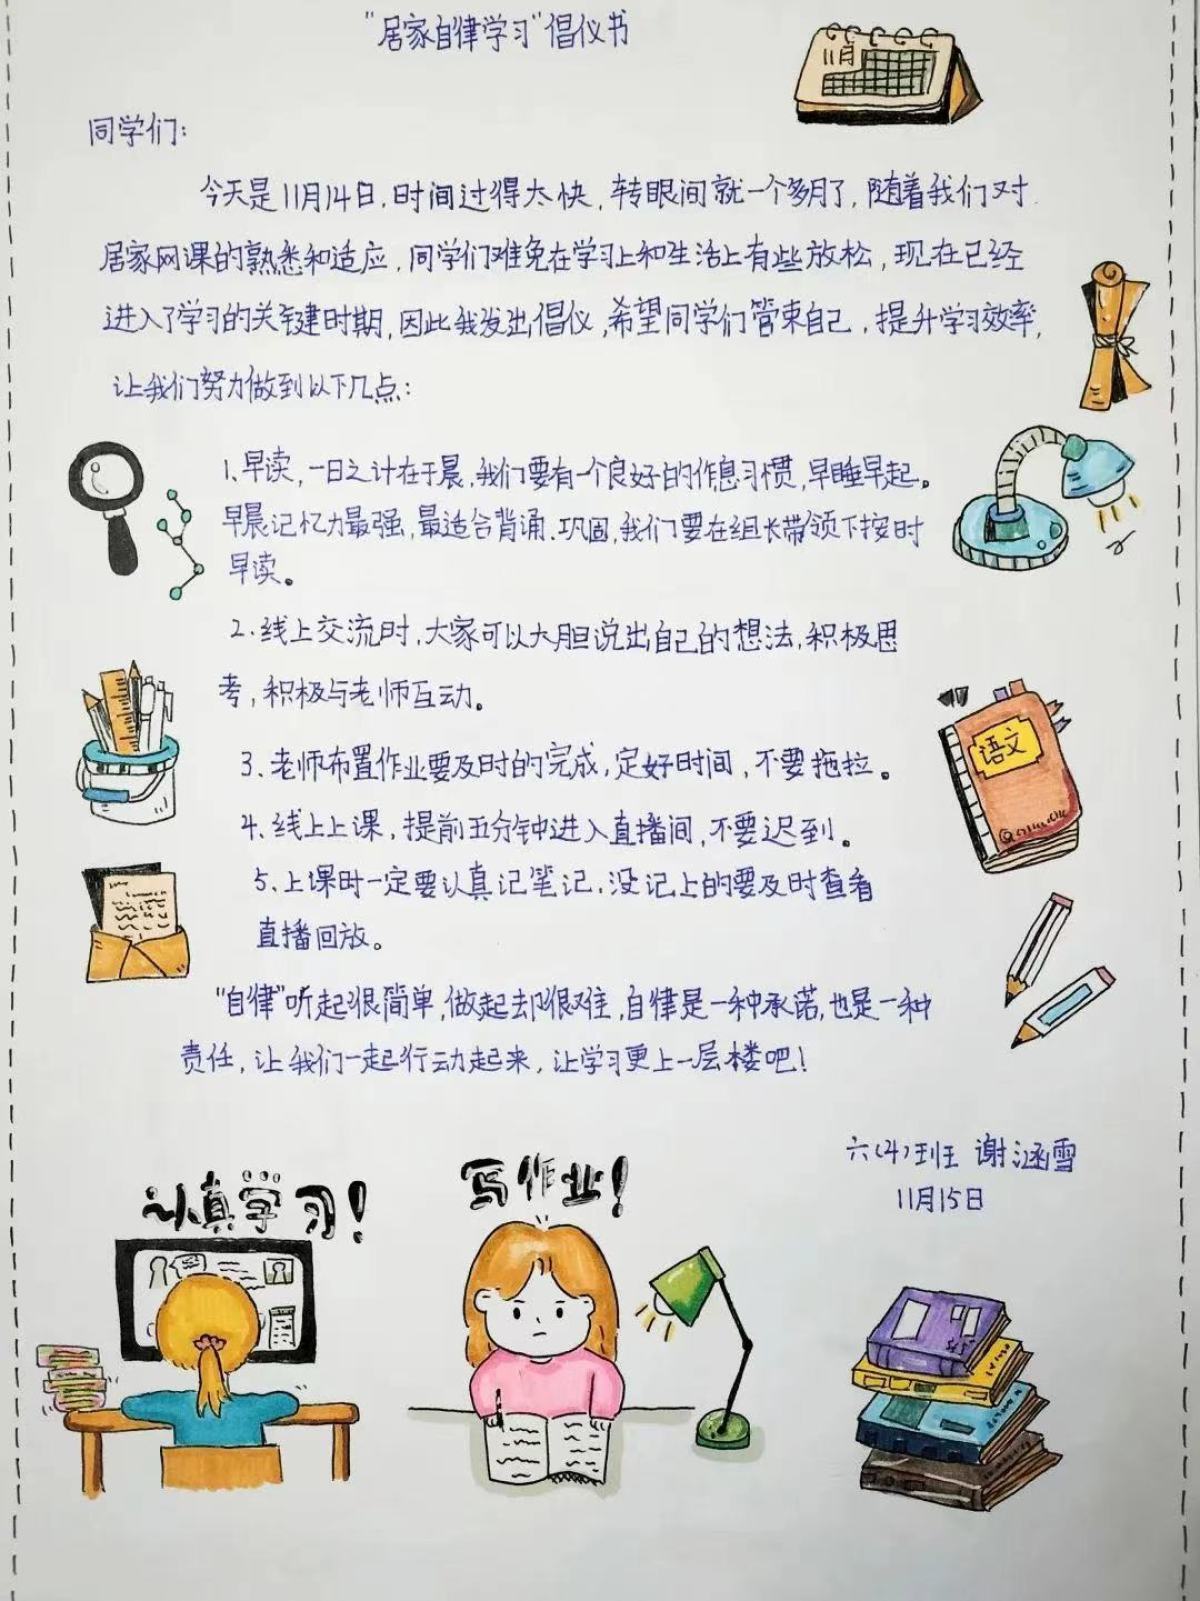 "居家自律学习"倡仪书
11月
同学们:
今天是11月14日,时间过得太快,转眼间就一个多月了,随着我们对
居家网课的熟悉和适应,同学们难免在学习上和生活上有些放松,现在已经
进入了学习的关键时期,因此我发出倡仪,希望同学们管束自己,提升学习效率,
让我们努力做到以下几点:
1、早读,一日之计在于晨,我们要有一个良好的作息习惯,早睡早起。
早晨记忆力最强,最适合背诵、巩固,我们要在组长带领下按时
早读。
2、线上交流时,大家可以大胆说出自己的想法,积极思
考,积极与老师互动。
3、老师布置作业要及时的完成,定好时间,不要拖拉。
语文
4、线上上课,提前五分钟进入直播间,不要迟到。
5、上课时一定要认真记笔记,没记上的要及时查看
直播回放。
"自律"听起很简单,做起却很难,自律是一种承诺,也是一种
责任,让我们一起行动起来,让学习更上一层楼吧!
六(4)班 谢涵雪
11月15日
认真学习!
写作业!